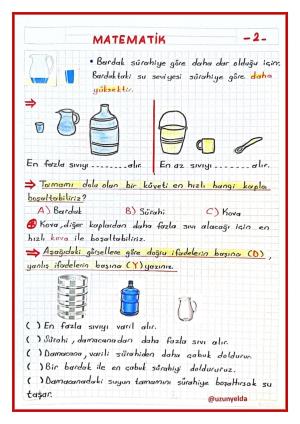 MATEMATİK -2-
• Bardak sürahiye göre daha dar olduğu için;
Bardaktaki su seviyesi sürahiye göre daha
yüksektir.
En fazla sıvıyı ............ alır. En az sıvıyı ............ alır.
⇒ Tamamı dolu olan bir küveti en hızlı hangi kapla
boşaltabiliriz?
A) Bardak B) Sürahi C) Kova
Kova, diğer kaplardan daha fazla sıvı alacağı için en
hızlı kova ile boşaltabiliriz.
⇒ Aşağıdaki görsellere göre doğru ifadelerin başına (D),
yanlış ifadelerin başına (Y) yazınız.
( ) En fazla sıvıyı varil alır.
( ) Sürahi, damacanadan daha fazla sıvı alır.
( ) Damacana, varili sürahiden daha çabuk doldurur.
( ) Bir bardak ile en çabuk sürahiyi doldururuz.
( ) Damacanadaki suyun tamamını sürahiye boşaltırsak su
taşar.
@uzunyelda